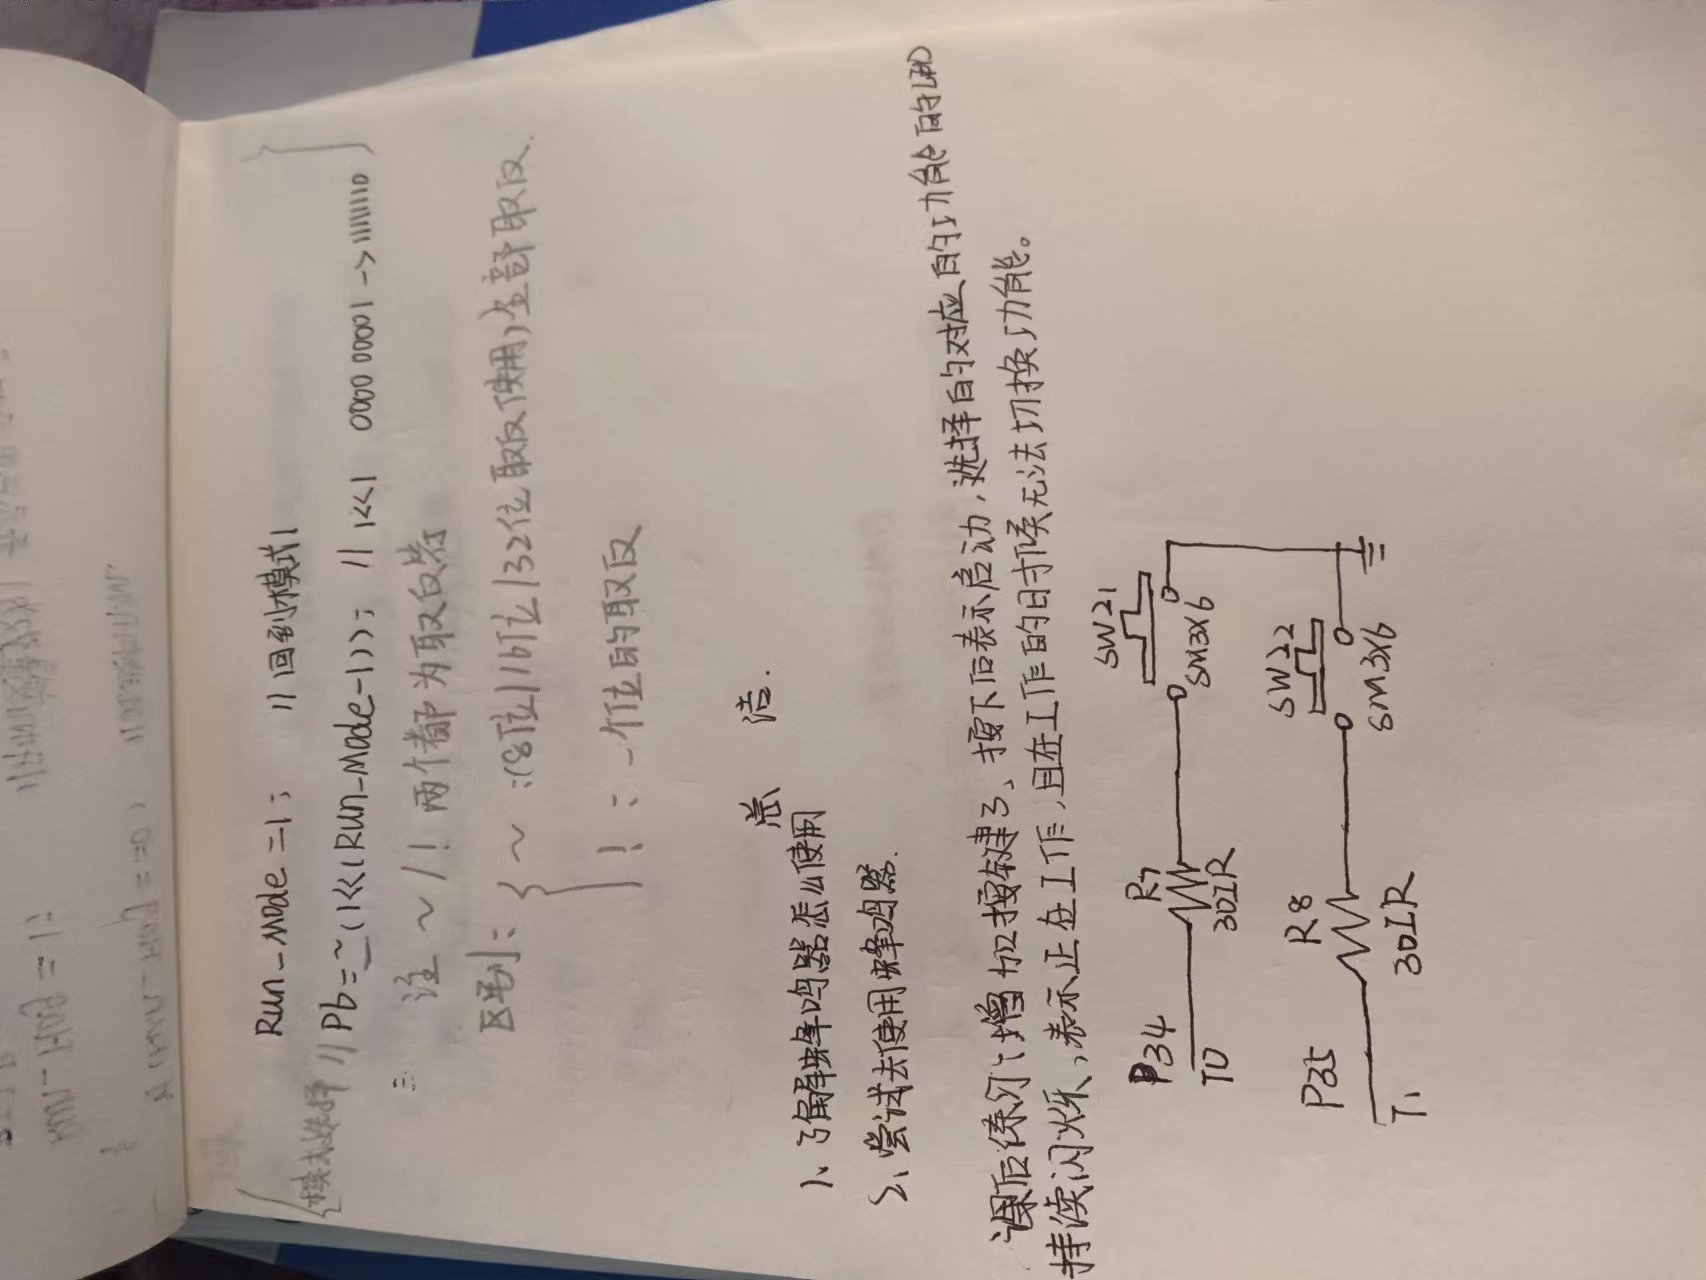 Run_Mode =1; //回到模式1
{模式选择 //Pb=~(1<<(Run_Mode-1)); // 1<<1 0000 0001 -> 11111110 }
注 ~ / ! 两个都为取反符
区别: { ~ :(8位/16位/32位取反使用)全部取反.
! : 一个位的取反
总 洁.
1、了解蜂鸣器怎么使用
2、尝试去使用蜂鸣器.
课后练习:增加按键3、按下后表示启动,选择的对应的功能的LED
持续闪烁,表示正在工作,且在工作的时候无法切换功能。
P34
T0
R7
30IR
SW21
SM3X6
P35
T1
R8
30IR
SW22
SM3X6